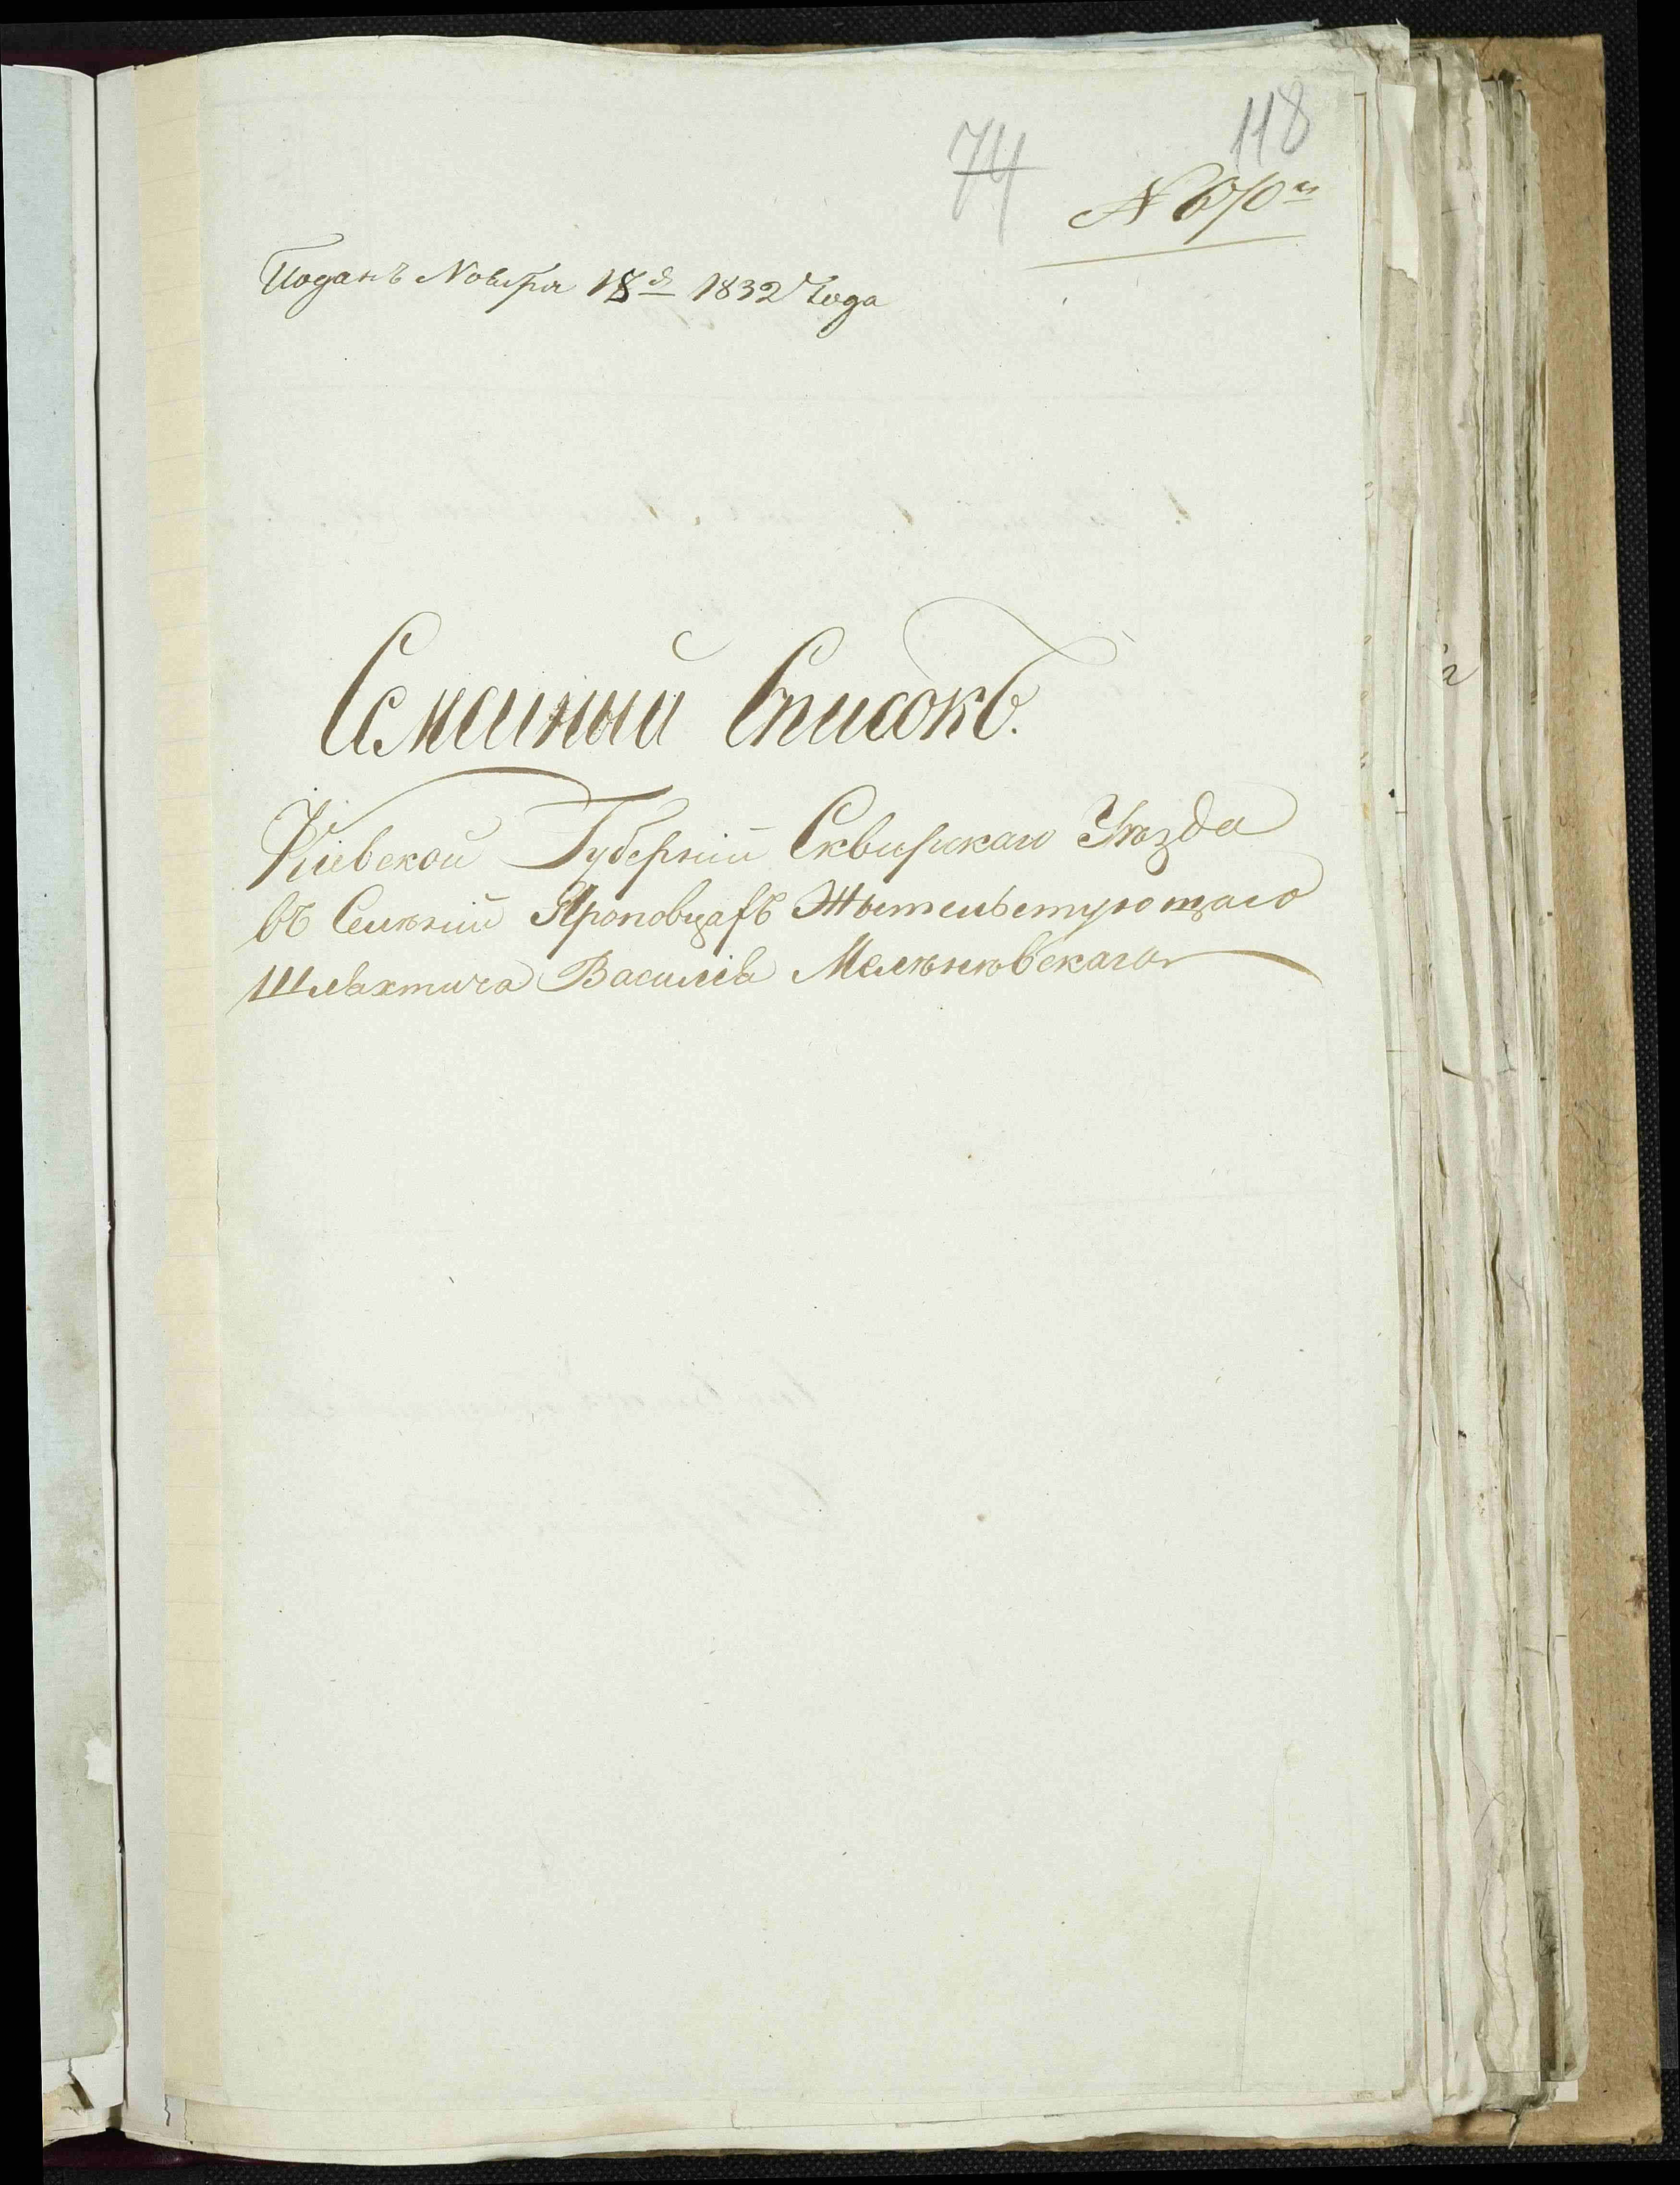 118
74
N 670й
Поданъ Ноября 18д 1832 Года
Семейный Списокъ.
Киевской Губерніи Сквирскаго Уѣзда
въ Селѣній Яроповцахъ Жытельствующаго
Шляхтича Василіа Мелѣнѣвскаго